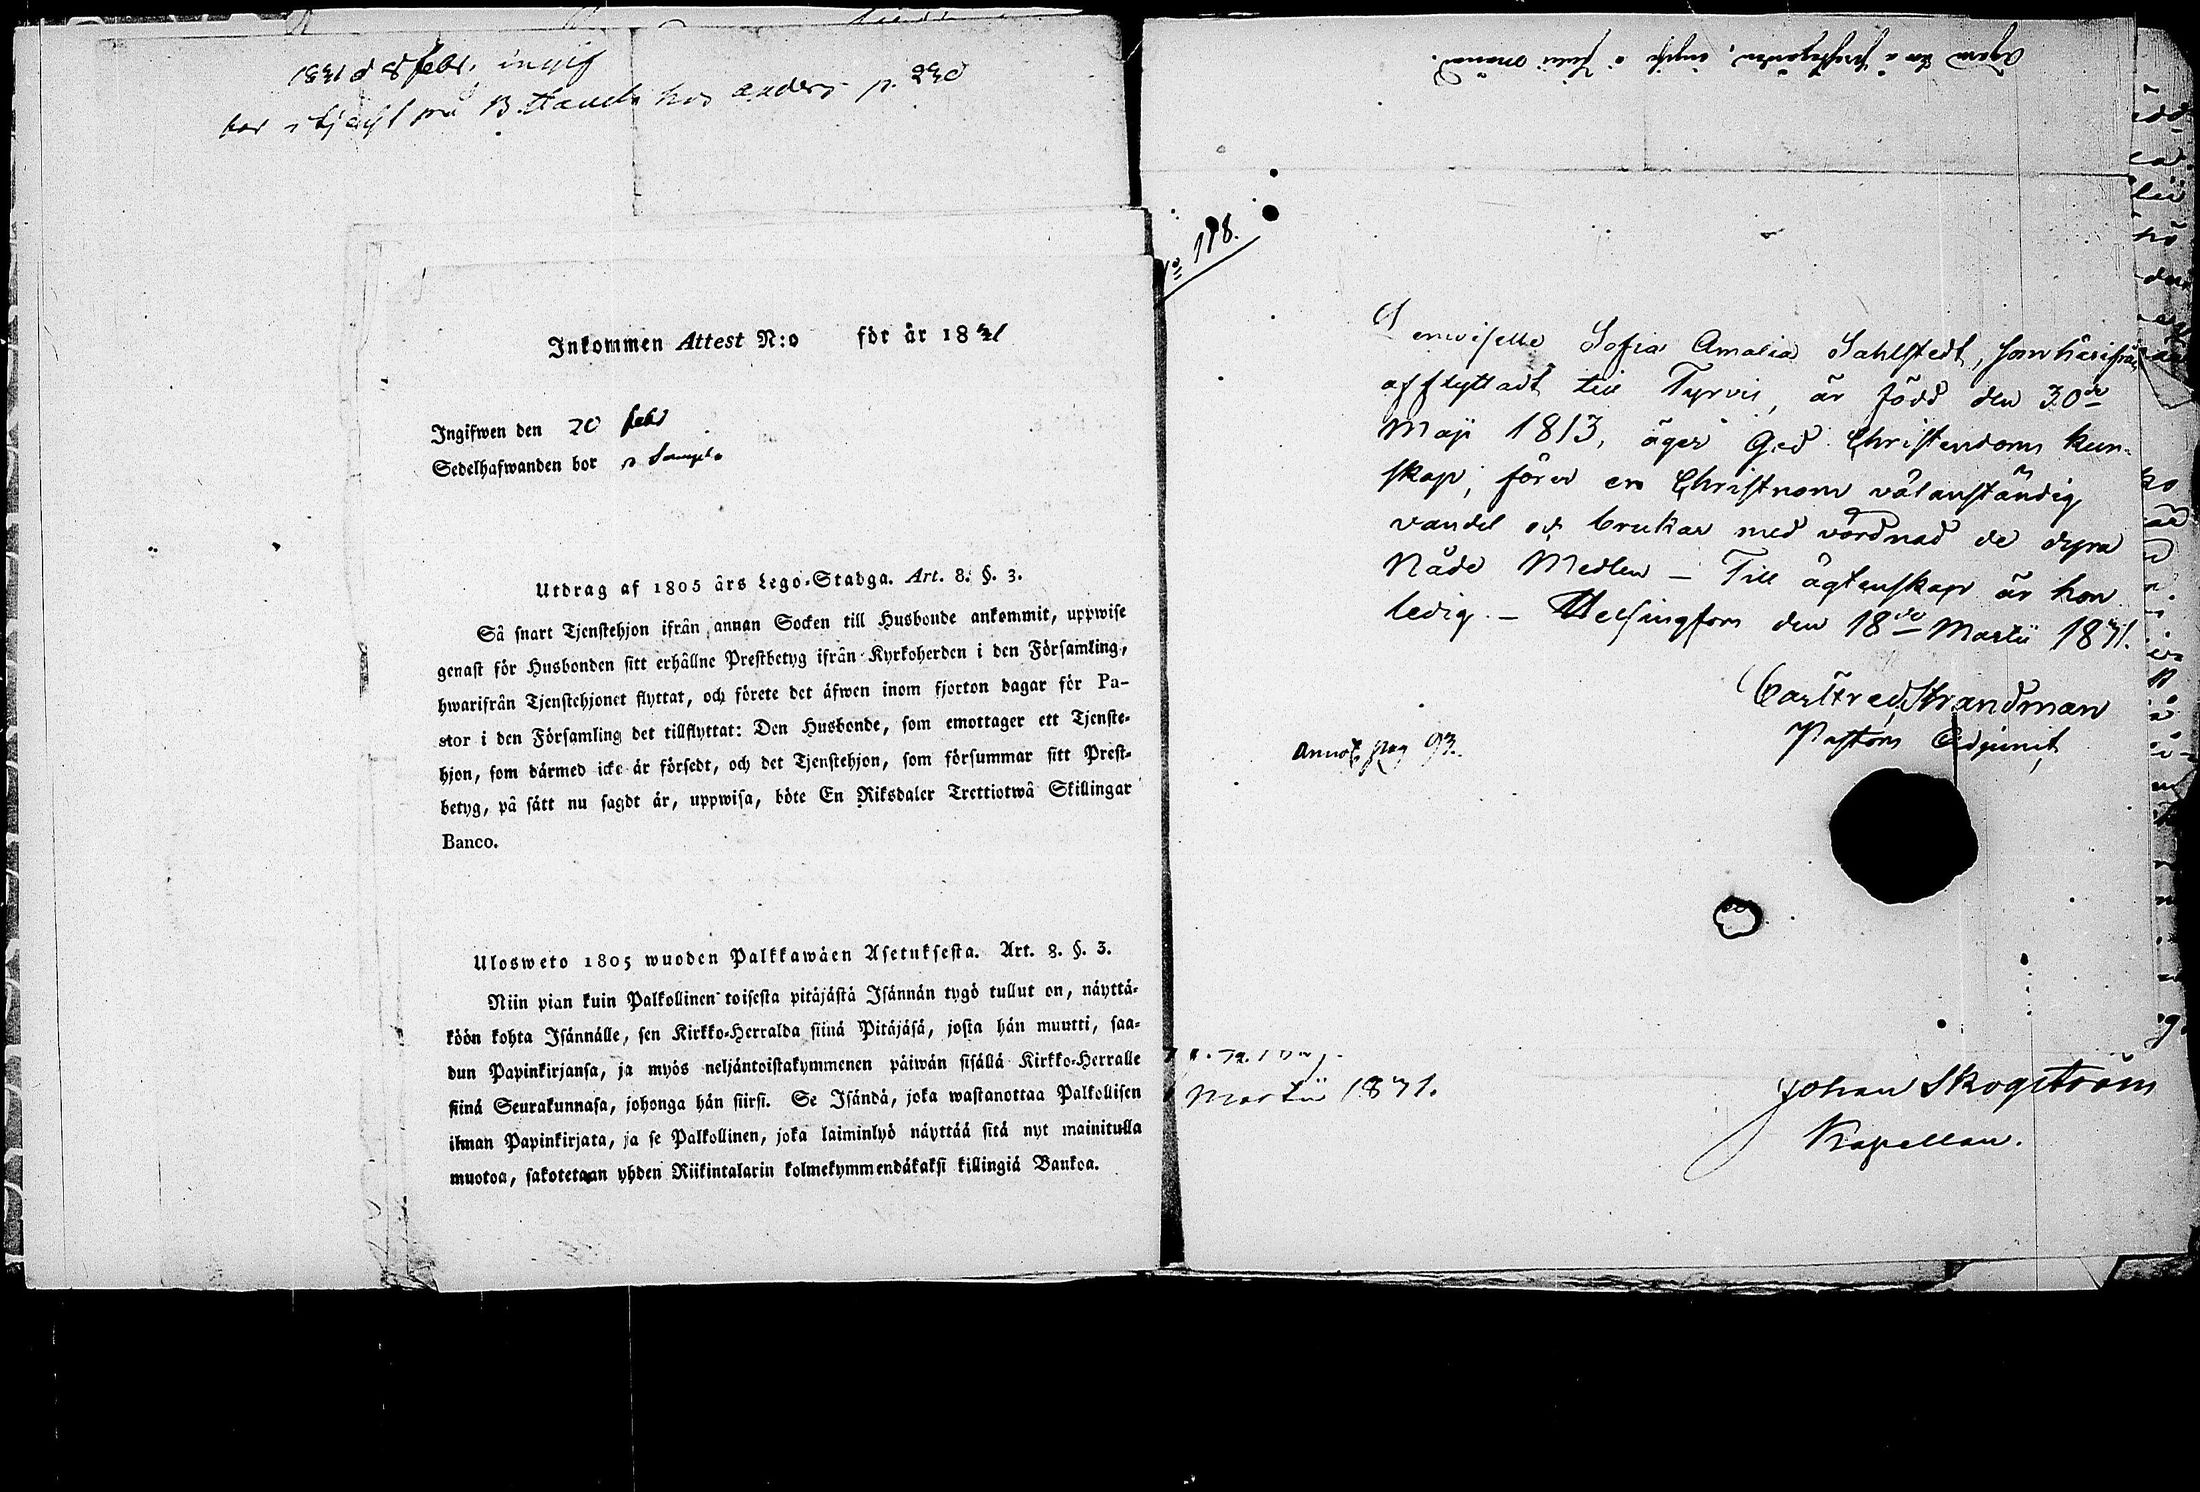 1841 d 8 febr. ingif
bor i tjenst på B. hos anders p. 240
Inkommen Attest N:o för år 1841
Ingifwen den 20 febr
Sedelhafwanden bor i
Utdrag af 1805 års Lego-Stadga. Art. 8. §. 3.
Så snart Tjenstehjon ifrån annan Socken till Husbonde ankommit, uppwise
genast för Husbonden sitt erhållne Prestbetyg ifrån Kyrkoherden i den Församling,
hwarifrån Tjenstehjonet flyttat, och förete det äfwen inom fjorton dagar för Pa-
stor i den Församling det tillflyttat: Den Husbonde, som emottager ett Tjenste-
hjon, som därmed icke är försedt, och det Tjenstehjon, som försummar sitt Prest-
betyg, på sätt nu sagdt är, uppwisa, böte En Riksdaler Trettiotwå Skillingar
Banco.
Ulosweto 1805 wuoden Palkkawäen Asetuksesta. Art. 8. §. 3.
Niin pian kuin Palkollinen toisesta pitäjästä Isännän tygö tullut on, näyttä-
köön kohta Isännälle, sen Kirkko-Herralda siinä Pitäjäsä, josta hän muutti, saa-
dun Papinkirjansa, ja myös neljäntoistakymmenen päiwän sisällä Kirkko-Herralle
siinä Seurakunnasa, johonga hän siirsi. Se Isändä, joka wastanottaa Palkollisen
ilman Papinkirjata, ja se Palkollinen, joka laiminlyö näyttää sitä nyt mainitulla
muotoa, sakotetaan yhden Riikintalarin kolmekymmendäkaksi killingiä Bankoa.
No 178.
Demoiselle Sofia Amalia Sahlstedt, som härifrån
afflyttadt till Tyrvis, är född den 30de
Maji 1813, äger God Christendoms kun-
skap, förer en Christnom välanständig
vandel och brukar med vördnad de dyra
Nåde Medlen – Till ägtenskap är hon
ledig. – Helsingfors den 18de Martii 1841.
Carl Fred Strandman
Pastors Adjunct
Annot. pag 93.
Martii 1841.
Johan Skogström
Kapellan.